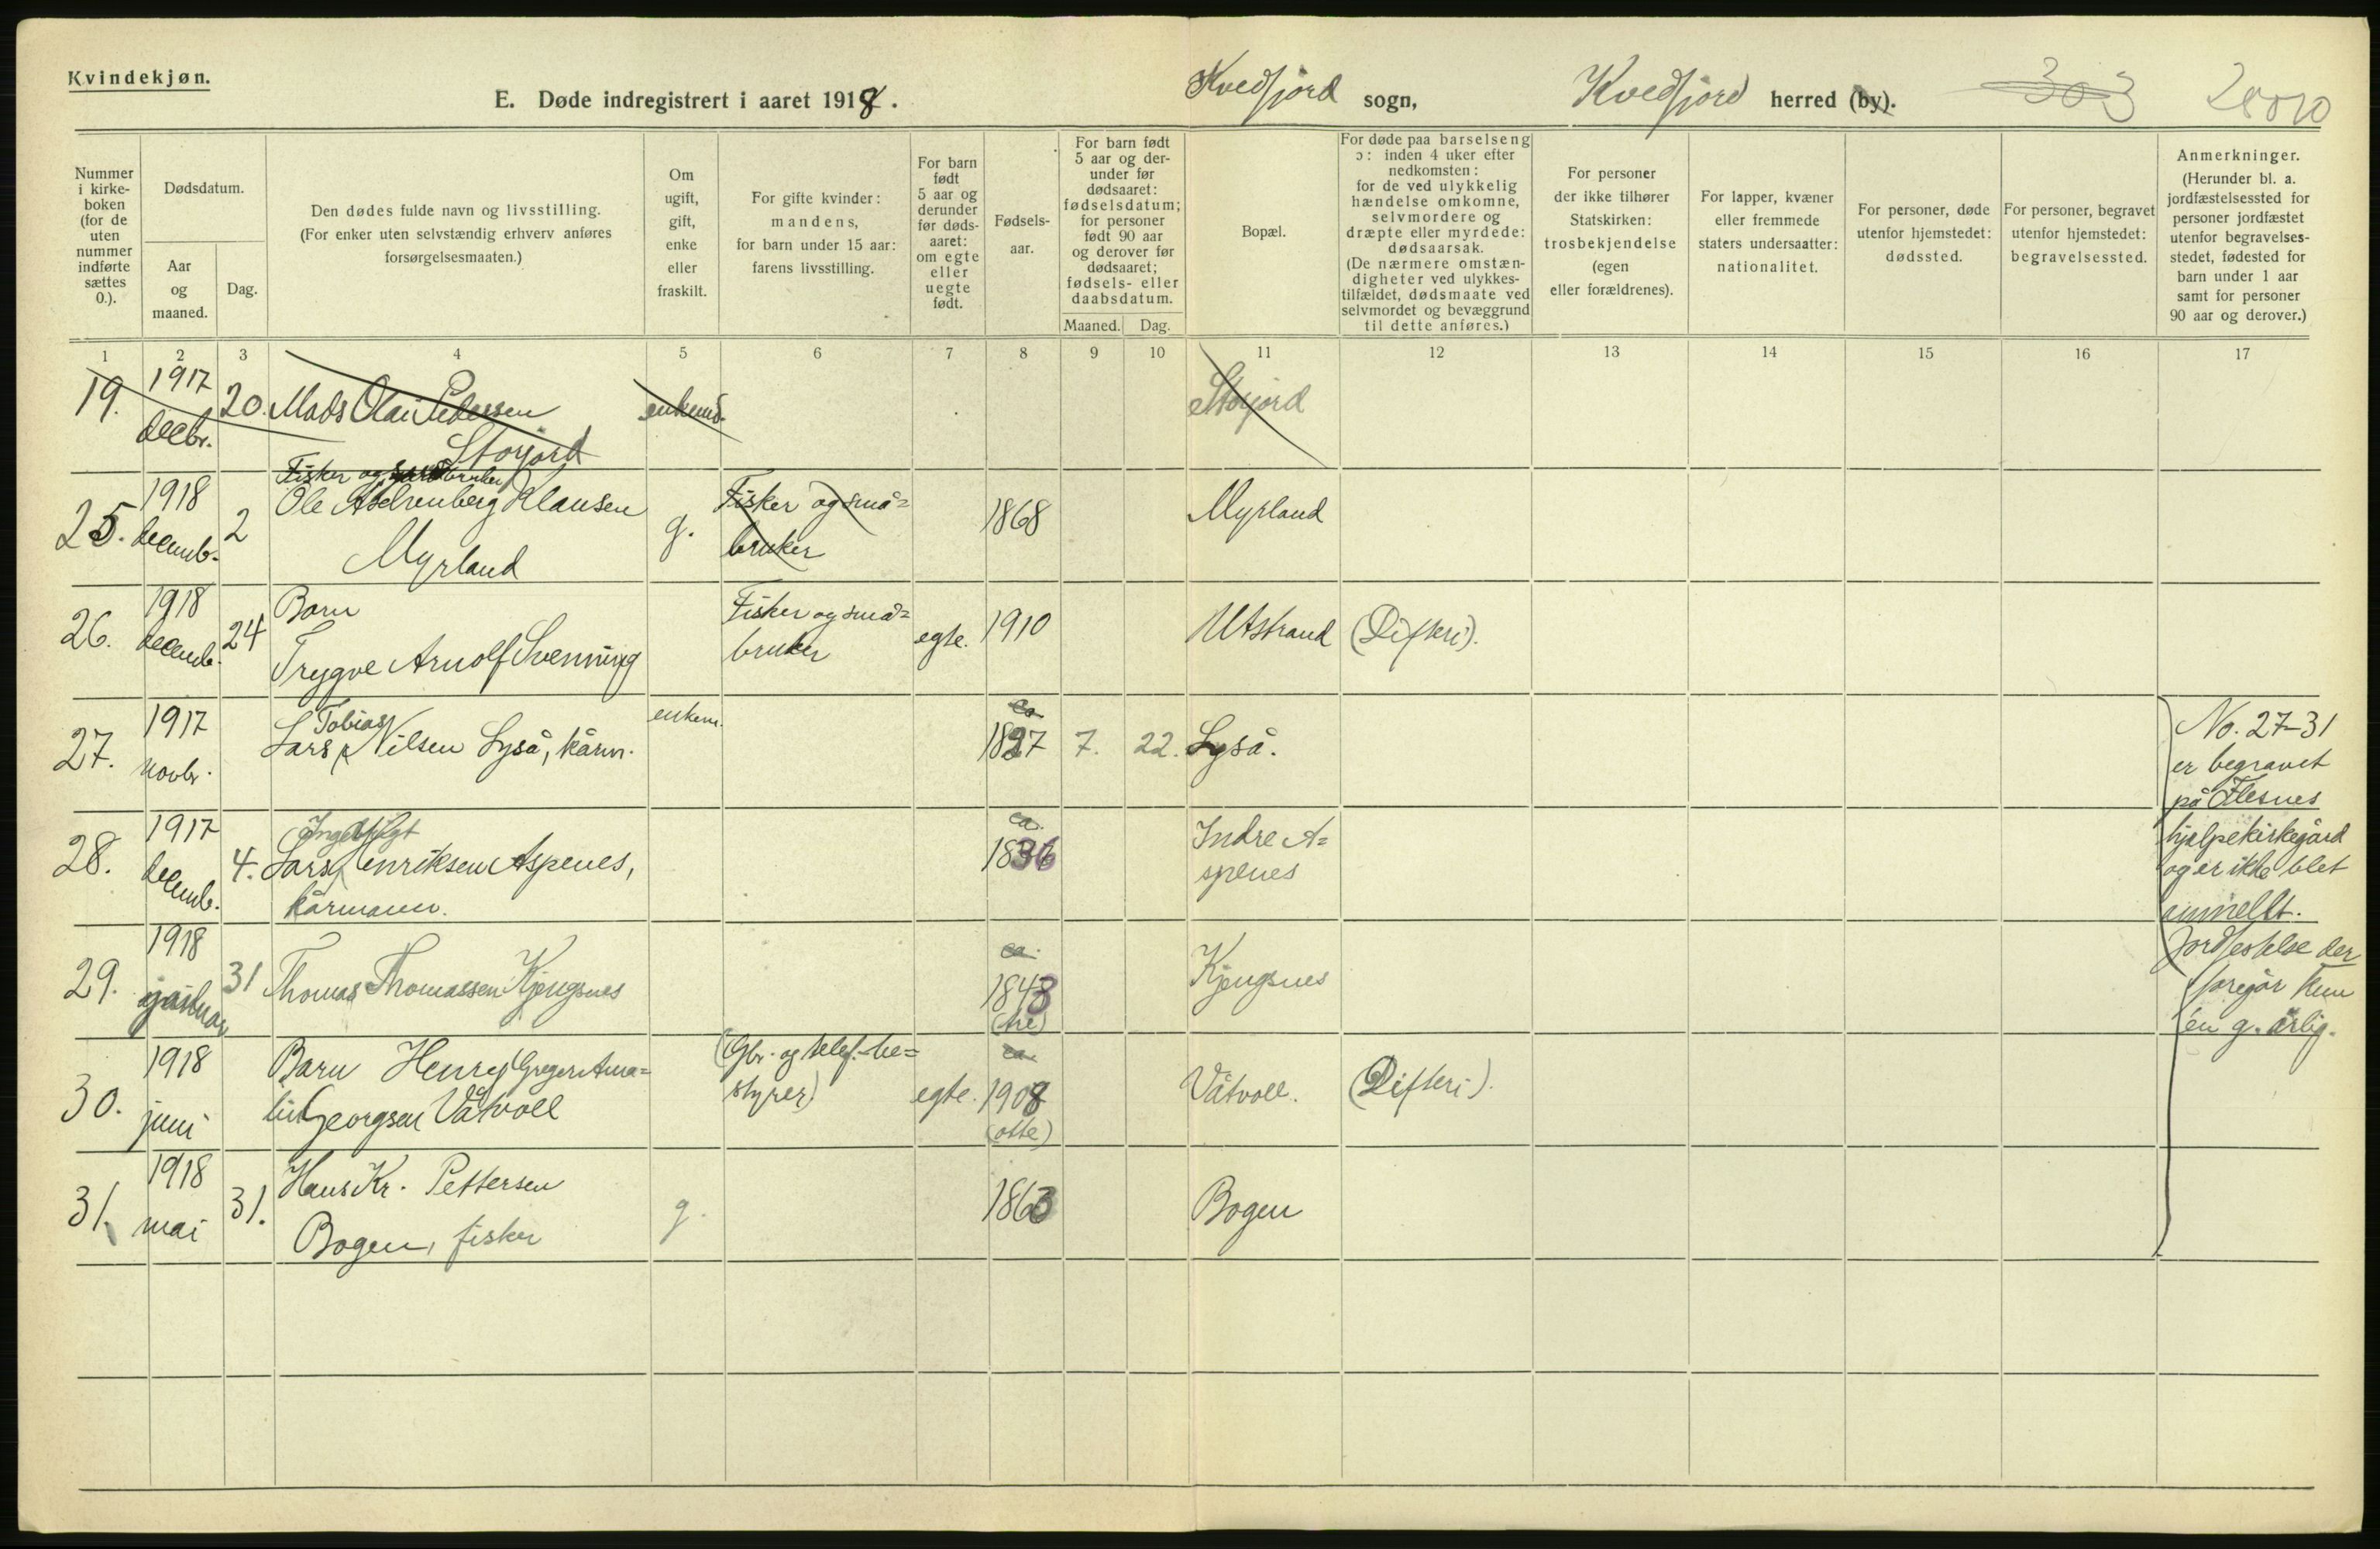 Kvindekjøn.
E. Døde indregistrert i aaret 1918.
Kvedfjord sogn,
Kvedfjord herred (by).
303
Nummer i kirke-boken (for de uten nummer indførte sættes 0.).
Dødsdatum.
Aar og maaned.
Dag.
Den dødes fulde navn og livsstilling.
(For enker uten selvstændig erhverv anføres forsørgelsesmaaten.)
Om ugift, gift, enke eller fraskilt.
For gifte kvinder: mandens, for barn under 15 aar: farens livsstilling.
For barn født 5 aar og derunder før døds-aaret: om egte eller uegte født.
Fødsels-aar.
For barn født 5 aar og der-under før dødsaaret: fødselsdatum; for personer født 90 aar og derover før dødsaaret; fødsels- eller daabsdatum.
Maaned.
Dag.
Bopæl.
For døde paa barselseng ɔ: inden 4 uker efter nedkomsten: for de ved ulykkelig hændelse omkomne, selvmordere og dræpte eller myrdede: dødsaarsak. (De nærmere omstæn-digheter ved ulykkes-tilfældet, dødsmaate ved selvmordet og bevæggrund til dette anføres.)
For personer der ikke tilhører Statskirken: trosbekjendelse (egen eller forældrenes).
For lapper, kvæner eller fremmede staters undersaatter: nationalitet.
For personer, døde utenfor hjemstedet: dødssted.
For personer, begravet utenfor hjemstedet: begravelsessted.
Anmerkninger. (Herunder bl. a. jordfæstelsessted for personer jordfæstet utenfor begravelses-stedet, fødested for barn under 1 aar samt for personer 90 aar og derover.)
1 2 3 4 5 6 7 8 9 10 11 12 13 14 15 16 17
19. 1917 decbr. 20. Mads Olai Pedersen Storjord enkem. Storjord
Fisker og småbruker
25. 1918 decemb. 2 Ole Klausen Myrland g. Fisker og små=bruker 1868 Myrland
26. 1918 decemb. 24 Barn Trygve Arnolf Svenning Fisker og små=bruker egte. 1910 Utstrand (Difteri).
27. 1917 novbr. Lars Tobias Nilsen Lyså, kårm. enkem. ca 1827 7. 22. Lyså.
28. 1917 decemb. 4. Lars Henriksen Aspenes, kårmann. ca. 1836 Indre A=spenes
29. 1918 januar 31 Thomas Thomassen Kjengsnes ca. 1843 (tre) Kjengsnes
30. 1918 juni Barn Henry Greger Ama=lius Georgsen Våtvoll (Gbr. og telef.-be=styrer) egte. ca. 1908 (otte) Våtvoll. (Difteri).
31. 1918 mai 31. Hans Kr. Pettersen Bogen, fisker g. 1863 Bogen
No. 27-31
er begravet
på Flesnes
hjelpekirkegård
og er ikke blet
anmeldt.
Jordfestelse der
foregår kun
én g. årlig.